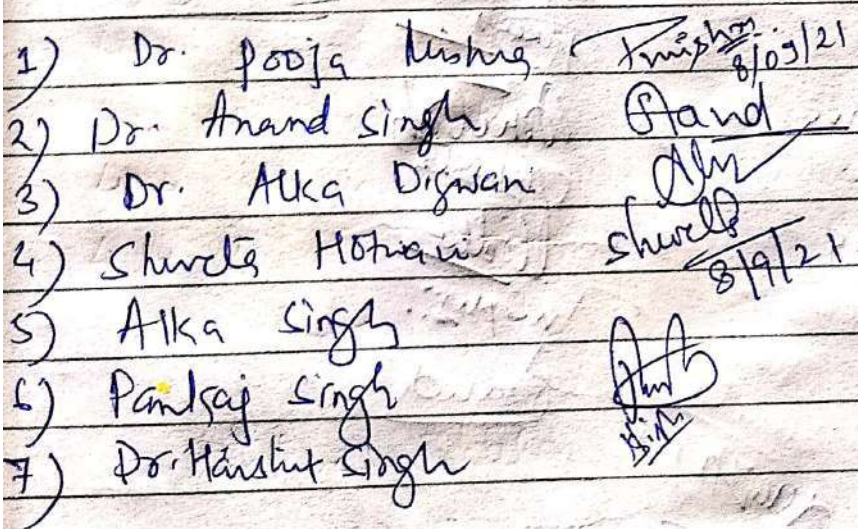 1) Dr. Pooja Mishra Pmishra 8/09/21
2) Dr. Anand Singh Anand
3) Dr. Alka Digwan
4) Shweta Hotwani Shweta 8/9/21
5) Alka Singh
6) Pankaj Singh
7) Dr. Harshit Singh